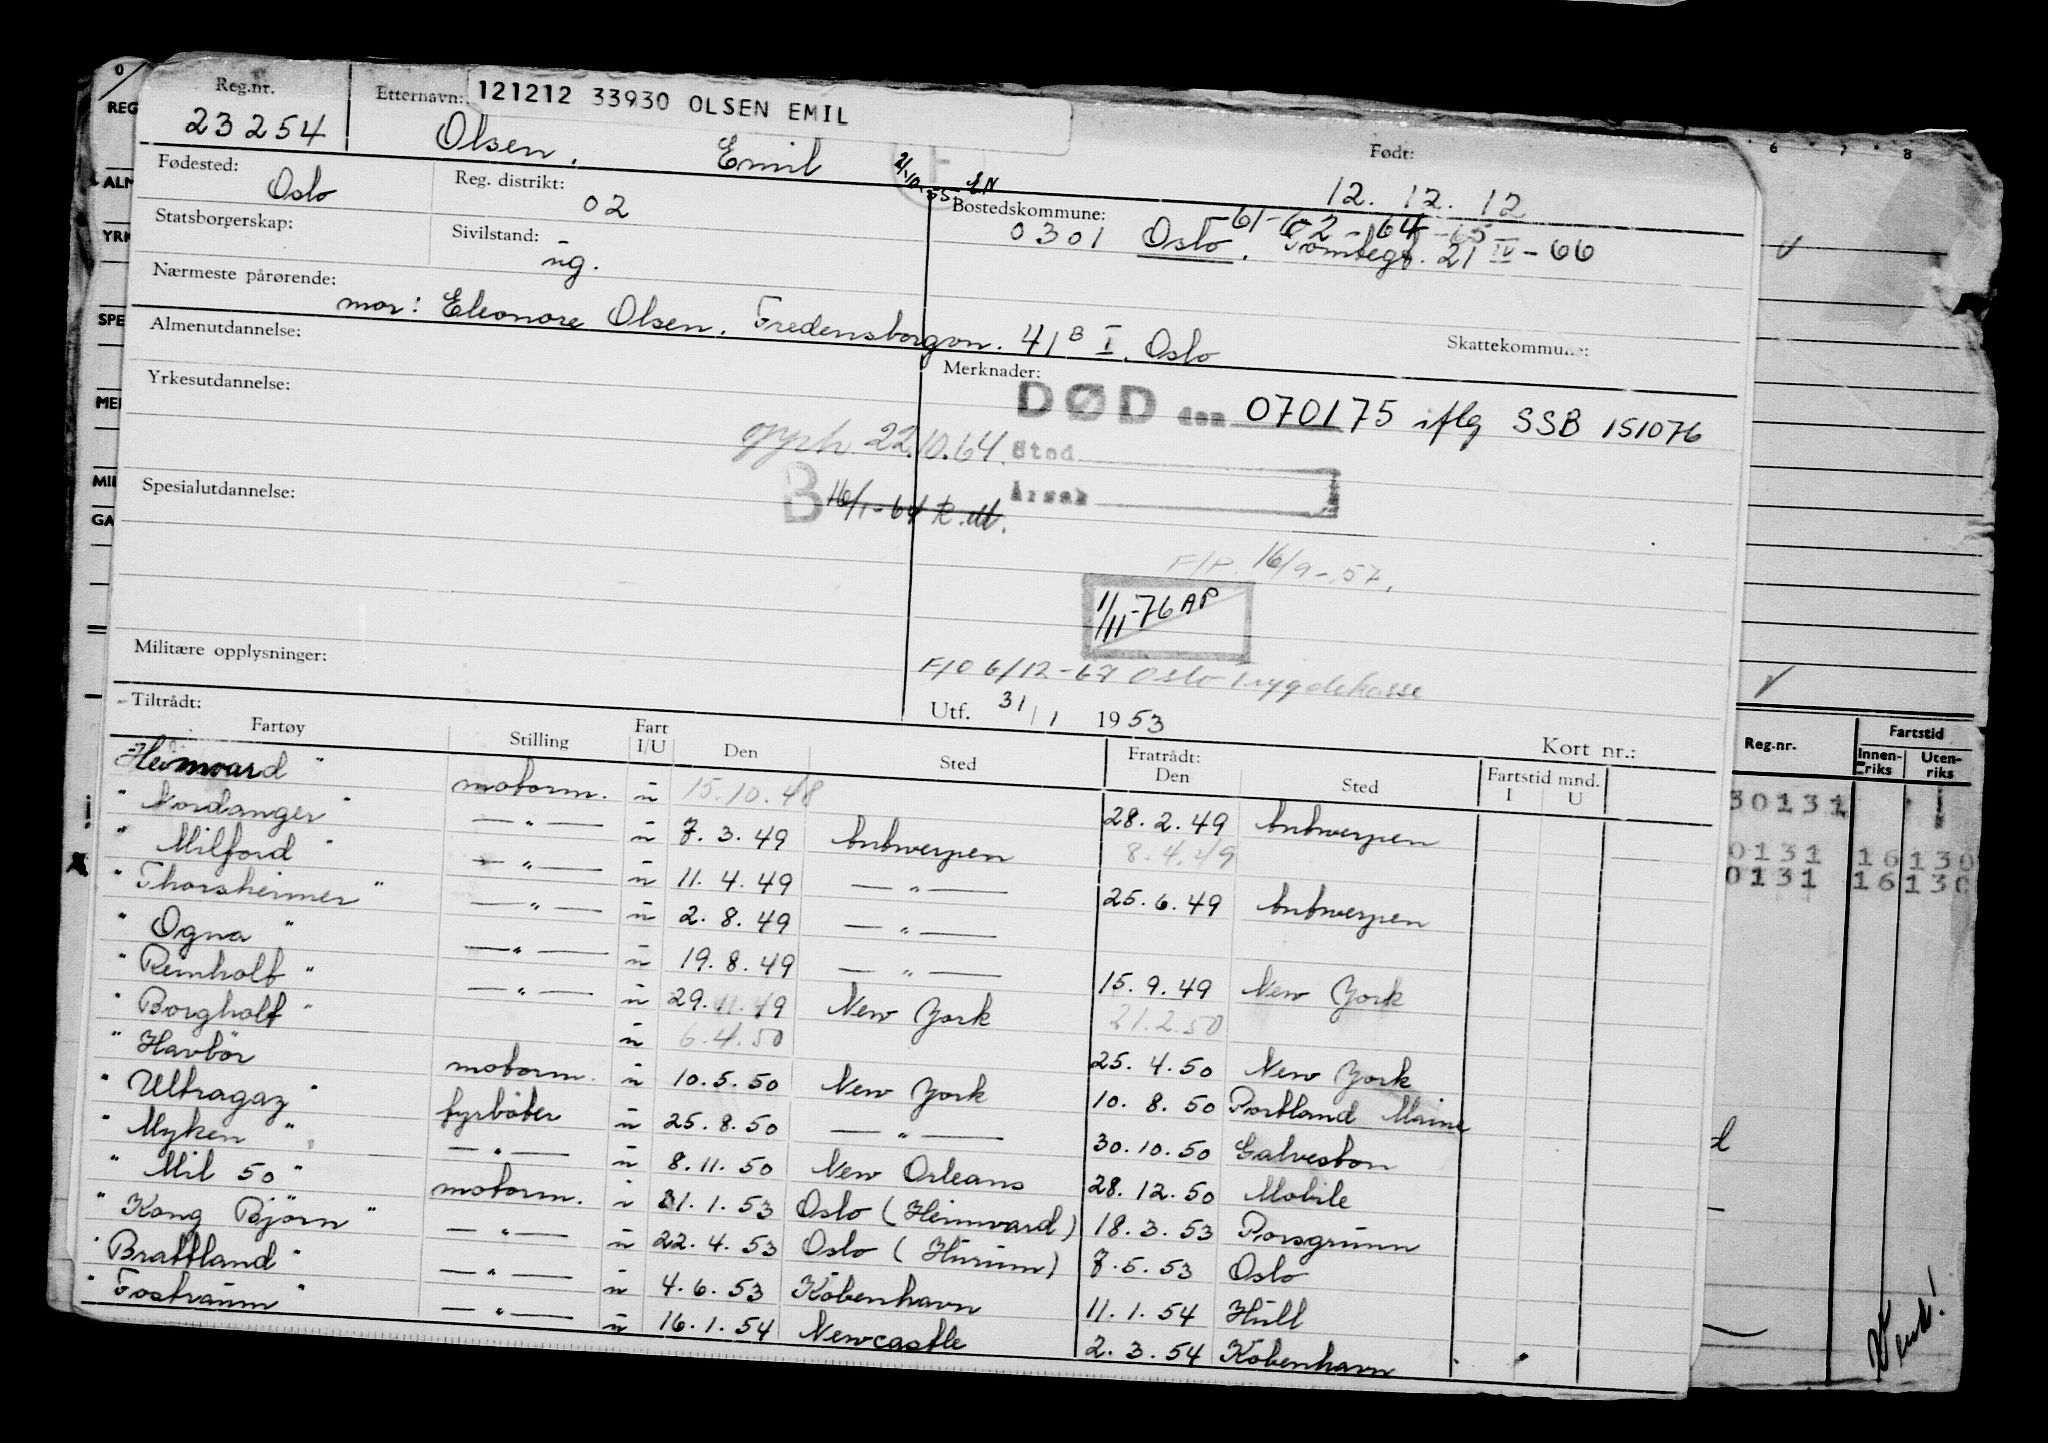 Reg.nr. Etternavn: 121212 33930 OLSEN EMIL
23254 Olsen, Emil Født: 12. 12. 12
Fødested: Oslo Reg. distrikt: 02
Bostedskommune: -61-62-64-65-66
0301 Oslo. Tomtegt. 21 IV
Statsborgerskap: Sivilstand: ug.
Nærmeste pårørende:
mor: Eleonore Olsen, Fredensborgvn. 41 B I, Oslo
Skattekommune:
Almenutdannelse:
Merknader:
DØD den 070175 iflg SSB 151076
Yrkesutdannelse:
opph. 22.10.64.
Sted
Årsak
B 16/1-64
Spesialutdannelse:
F/P. 16/9-57.
1/11-76 AP
Militære opplysninger:
F/O 6/12-67 Oslo Trygdekasse
Utf. 31/1 1953
Kort nr.:
Tiltrådt: Fratrådt:
Fartøy Stilling Fart I/U Den Sted Den Sted Fartstid mnd. I U
Heimvard " motorm. u 15.10.48 28.2.49 Antwerpen
" Nordanger " — " — u 7.3.49 Antwerpen 8.4.49
" Milford " — " — u 11.4.49 — " — 25.6.49 Antwerpen
" Thorsheimer " — " — u 2.8.49 — " —
" Ogna " — " — u 19.8.49 — " — 15.9.49 New York
" Reinholt " — " — u 29.11.49 New York 21.2.50
" Borgholt " u 6.4.50 25.4.50 New York
" Havbör motorm. u 10.5.50 New York 10.8.50 Portland Maine
" Ultragaz " fyrböter u 25.8.50 — " — 30.10.50 Galveston
" Myken " — " — u 8.11.50 New Orleans 28.12.50 Mobile
" Mil 50 " motorm. i 31.1.53 Oslo (Heimvard) 18.3.53 Porsgrunn
" Kong Björn " — " — u 22.4.53 Oslo (Hurum) 7.5.53 Oslo
" Brattland " — " — u 4.6.53 Köbenhavn 11.1.54 Hull
" Fostraum " — " — u 16.1.54 Newcastle 2.3.54 Köbenhavn
0
REG
ALM
YRK
SPE
MIL
GA
6 7 8
Reg.nr. Fartstid
Innen-riks Uten-riks
30131
0131 16 130
0131 16 130